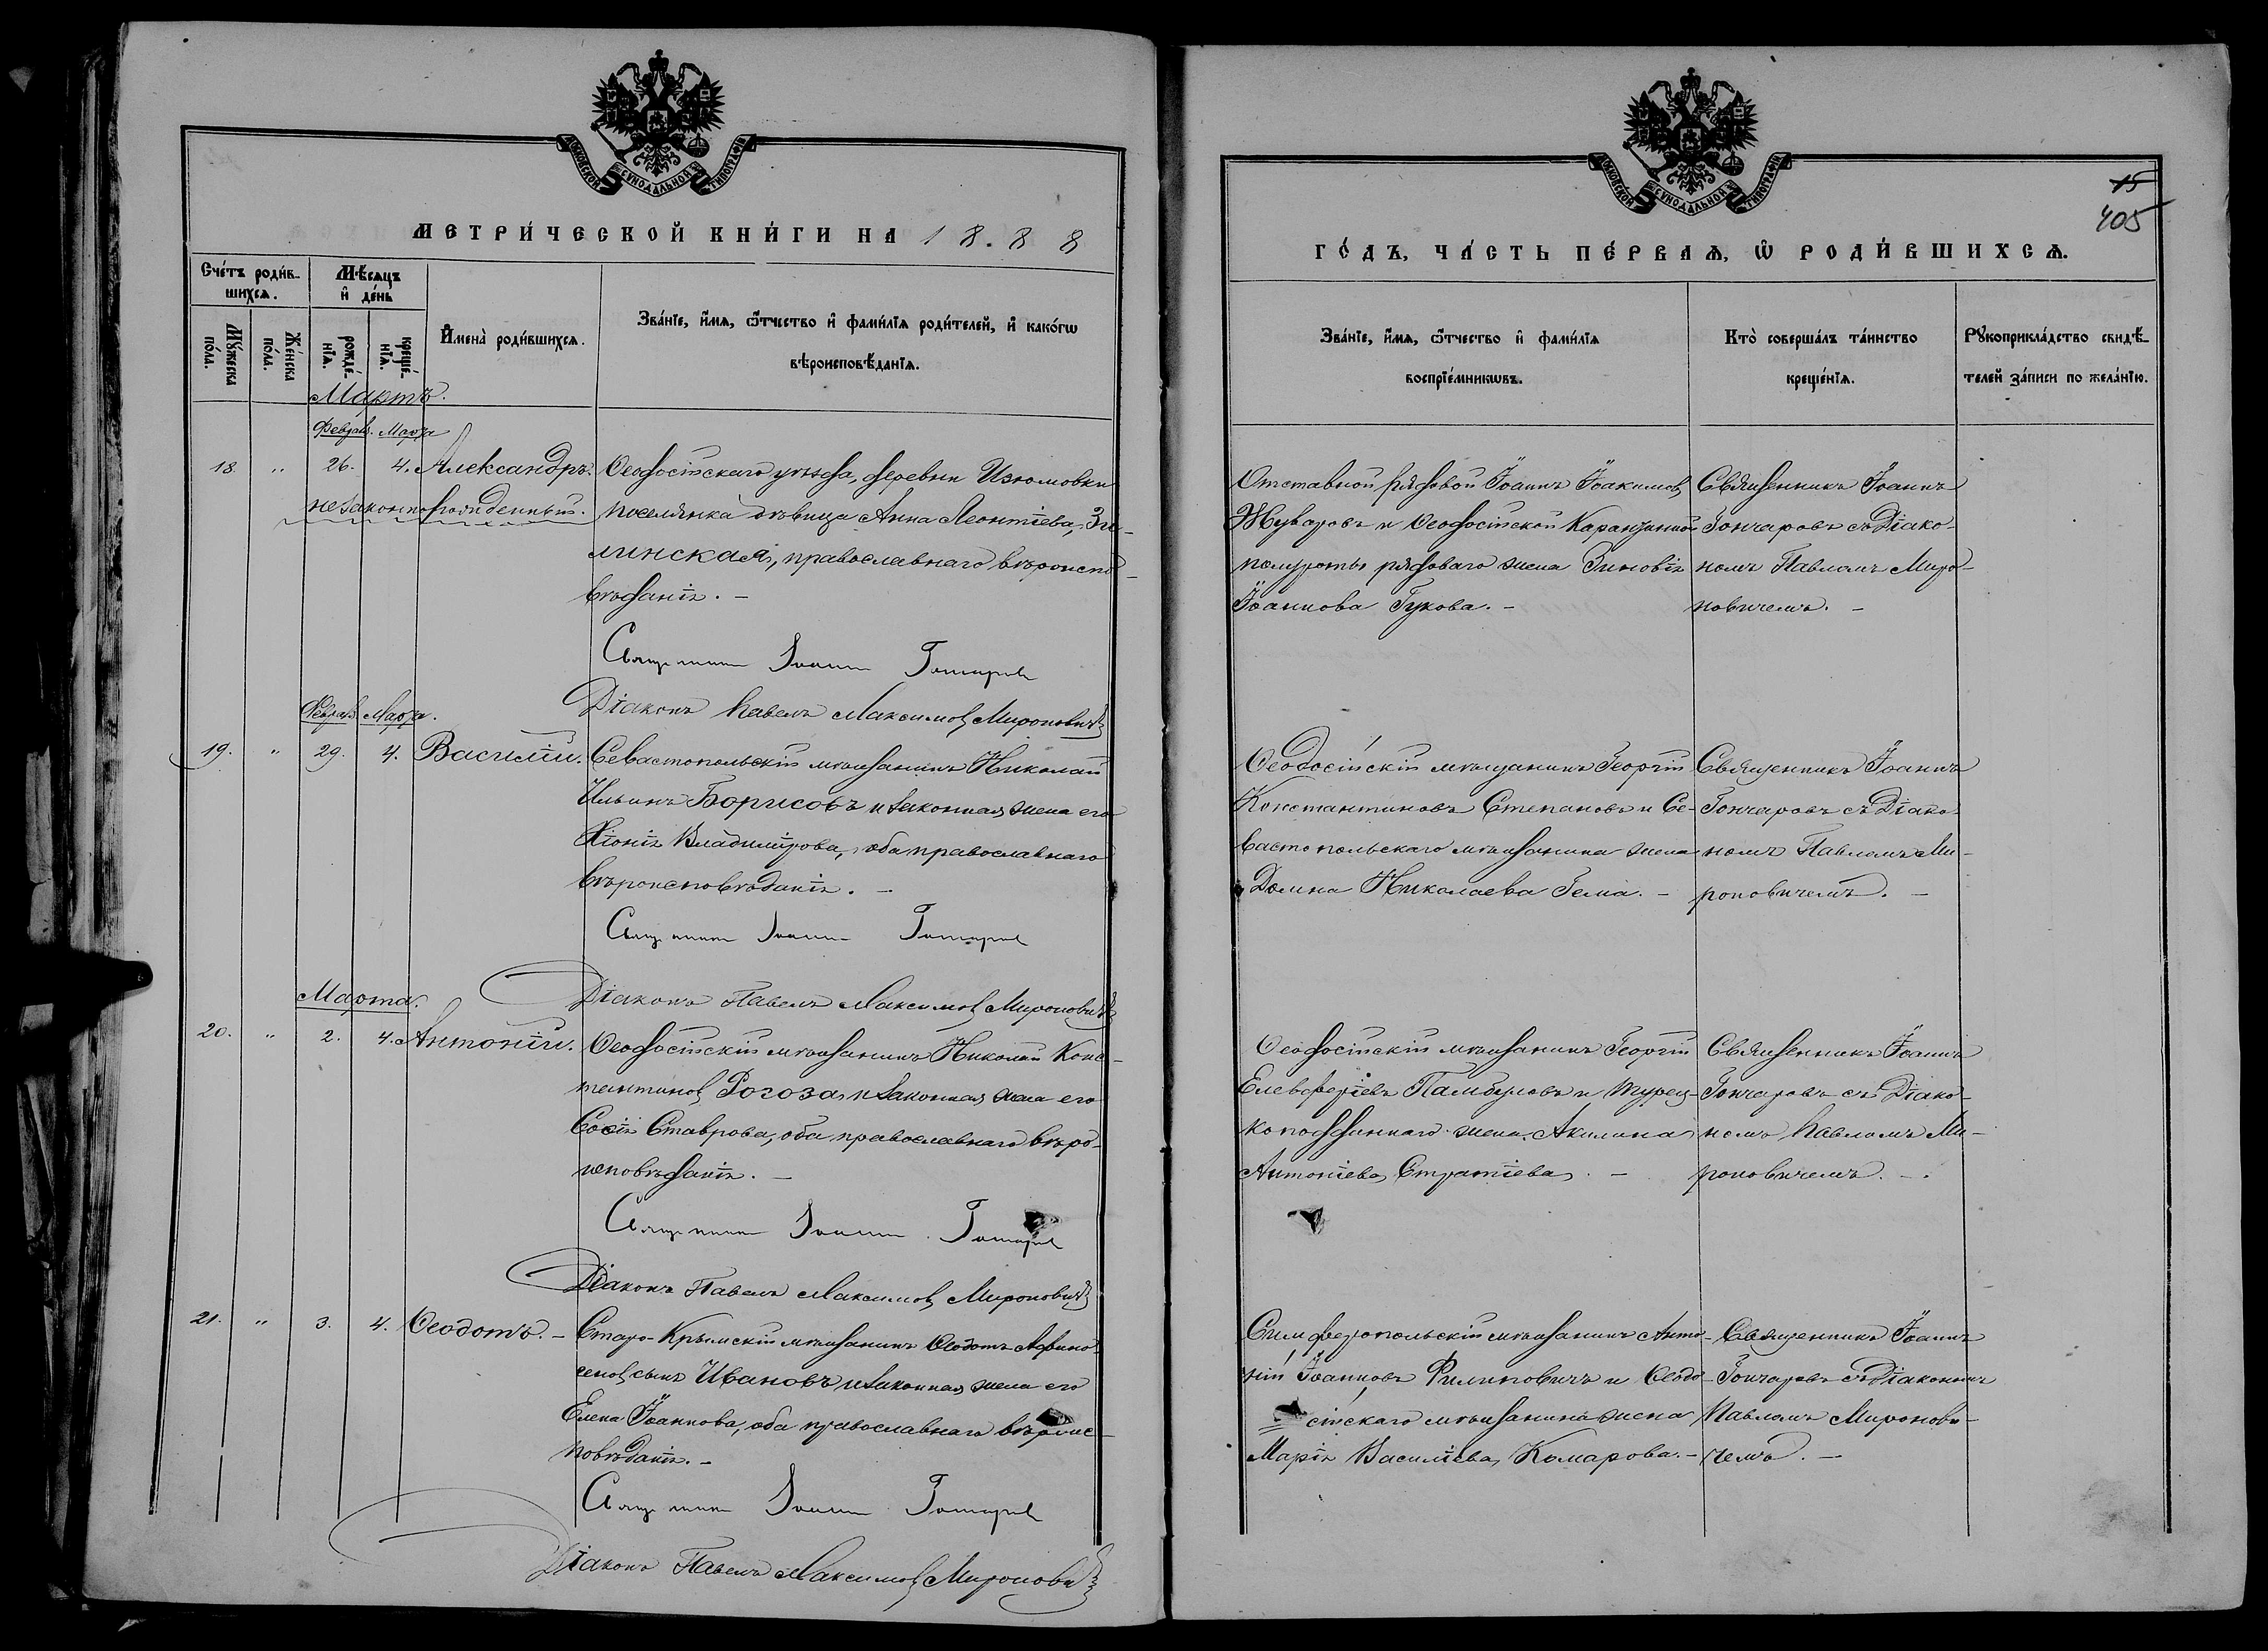 МОСКОВСКОЙ СѴНОДАЛЬНОЙ ТИПОГРАФІИ
МЕТРИ́ЧЕСКОЙ КНИ́ГИ НА 1888
Сче́тъ роди́в-
шихсѧ.
Мѣ́сѧцъ
и҆ де́нь
Мꙋ́жеска
по́ла.
Же́нска
по́ла.
рожде́-
нїѧ.
креще́-
нїѧ.
И҆мена̀ роди́вшихсѧ.
Зва́нїе, и҆́мѧ, ѻ҆́тчество и҆ фами́лїѧ роди́телей, и҆ како́гѡ
вѣроисповѣ́данїѧ.
Мартъ.
Феврал. Марта
18. " 26. 4. Александръ. Ѳеодосійскаго уѣзда, деревни Изюмовки
незаконнорожденный. поселянка дѣвица Анна Леонтіева, Зи-
линская, православнаго вѣроиспо-
вѣданія. –
Священникъ Іоаннъ Гончаровъ
Діаконъ Павелъ Максимовъ Мироновичъ
Феврал. Марта.
19. " 29. 4. Василій. Севастопольскій мѣщанинъ Николай
Ильинъ Борисовъ и законная жена его
Хіонія Владимірова, оба православнаго
вѣроисповѣданія. –
Священникъ Іоаннъ Гончаровъ
Діаконъ Павелъ Максимовъ Мироновичъ
Марта.
20. " 2. 4. Антоній. Ѳеодосійскій мѣщанинъ Николай Конс-
тантиновъ Рогоза и законная жена его
Софія Ставрова, оба православнаго вѣро-
исповѣданія. –
Священникъ Іоаннъ Гончаровъ
Діаконъ Павелъ Максимовъ Мироновичъ
21. " 3. 4. Ѳеодотъ. – Старо-Крымскій мѣщанинъ Ѳеодотъ Афино-
геновъ сынъ Ивановъ и законная жена его
Елена Іоаннова, оба православнаго вѣроис-
повѣданія. –
Священникъ Іоаннъ Гончаровъ
Діаконъ Павелъ Максимовъ Мироновичъ
МОСКОВСКОЙ СѴНОДАЛЬНОЙ ТИПОГРАФІИ
15
405
ГО́ДЪ, ЧА́СТЬ ПЕ́РВАѦ, Ѿ РОДИ́ВШИХСѦ.
Зва́нїе, и҆́мѧ, ѻ҆́тчество и҆ фами́лїѧ
воспрїе́мникѡвъ.
Кто̀ соверша́лъ та́инство
креще́нїѧ.
Рꙋкоприкла́дство свидѣ́-
телей за́писи по жела́нїю.
Отставной рядовой Іоаннъ Іоакимовъ
Жуваровъ и Ѳеодосійской Карантинной
полуроты рядоваго жена Зиновія
Іоаннова Гукова. –
Священникъ Іоаннъ
Гончаровъ съ Діако-
номъ Павломъ Миро-
новичемъ. –
Ѳеодосійскій мѣщанинъ Георгій
Константиновъ Степановъ и Се-
вастопольскаго мѣщанина жена
Домна Николаева –
Священникъ Іоаннъ
Гончаровъ съ Діако-
номъ Павломъ Ми-
роновичемъ. –
Ѳеодосійскій мѣщанинъ Георгій
Елевферіевъ Памбуловъ и турец-
коподданнаго жена Акилина
Антоніева Стратіева. –
Священникъ Іоаннъ
Гончаровъ съ Діако-
номъ Павломъ Ми-
роновичемъ. –
Симферопольскій мѣщанинъ Анто-
ній Іоанновъ Филиповичъ и Ѳеодо-
сійскаго мѣщанина жена
Марія Василіева Комарова. –
Священникъ Іоаннъ
Гончаровъ съ Діакономъ
Павломъ Миронови-
чемъ. –